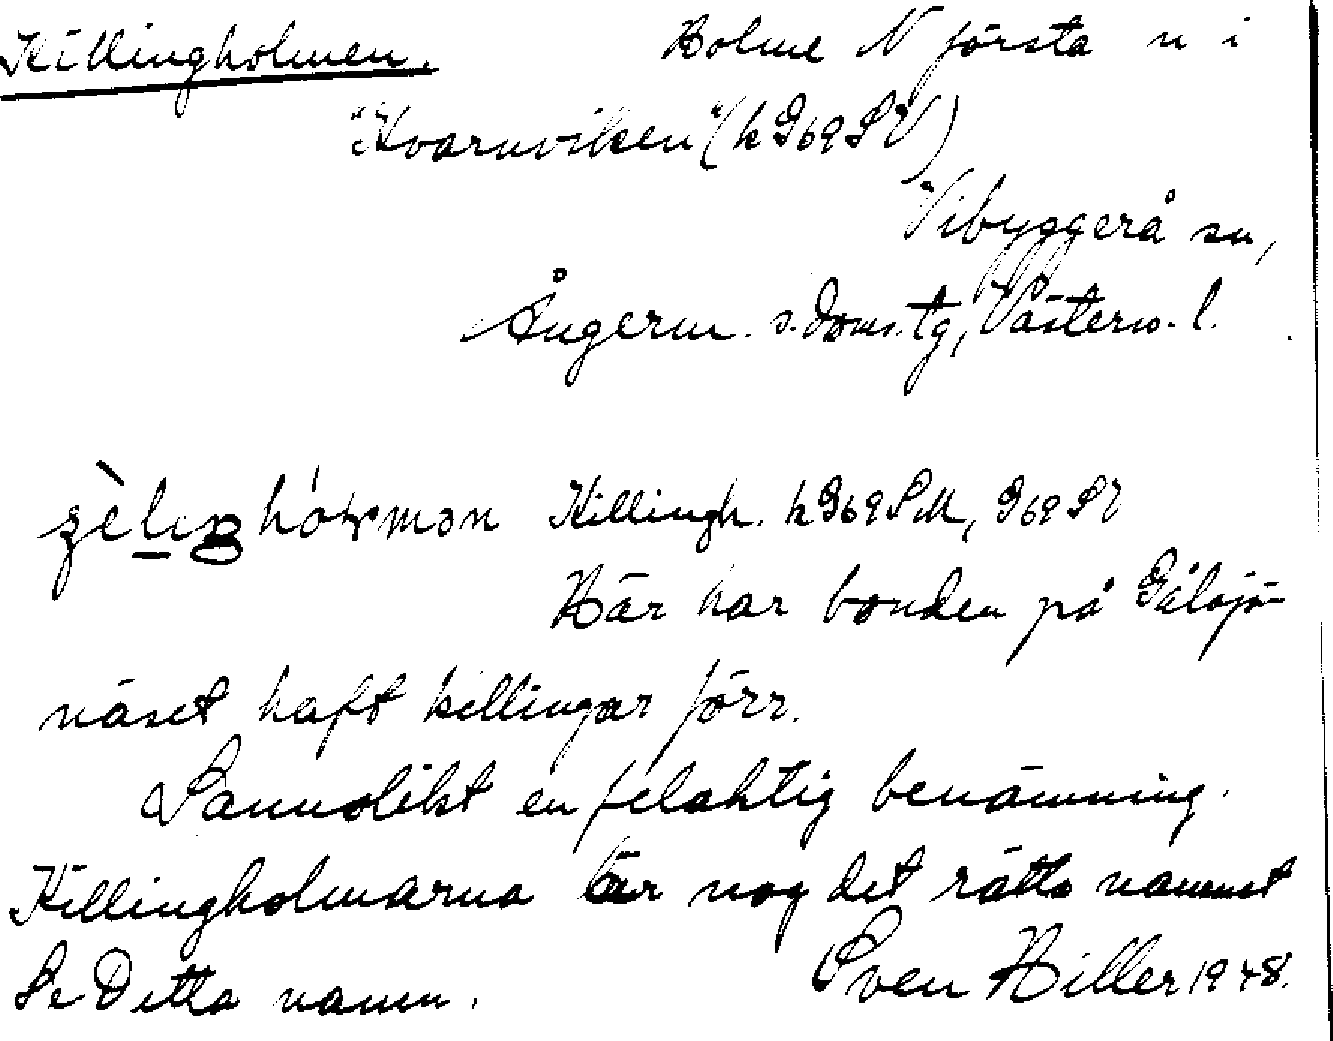 Killingholmen. Holme N första n i
"Kvarnviken" (k 969 SV)
Vibyggerå sn,
Ångerm. s. doms. tg, Västern. l.
hóɫmən Killingh. k 969 SM, 969 SV
Här har bonden på Gålsjö-
näset haft killingar förr.
Sannolikt en felaktig benämning.
Killingholmarna är nog det rätta namnet
Se Detta namn. Sven Hiller 1948.